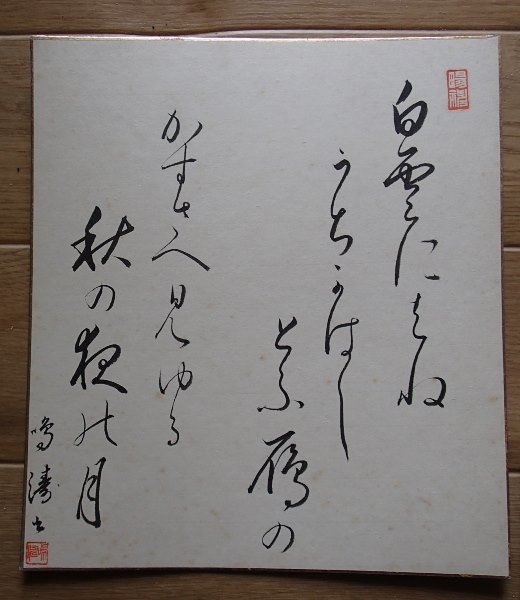 白雲にはね
うちかはし
とふ雁の
かすさへ見ゆる
秋の夜の月
鳴濤書